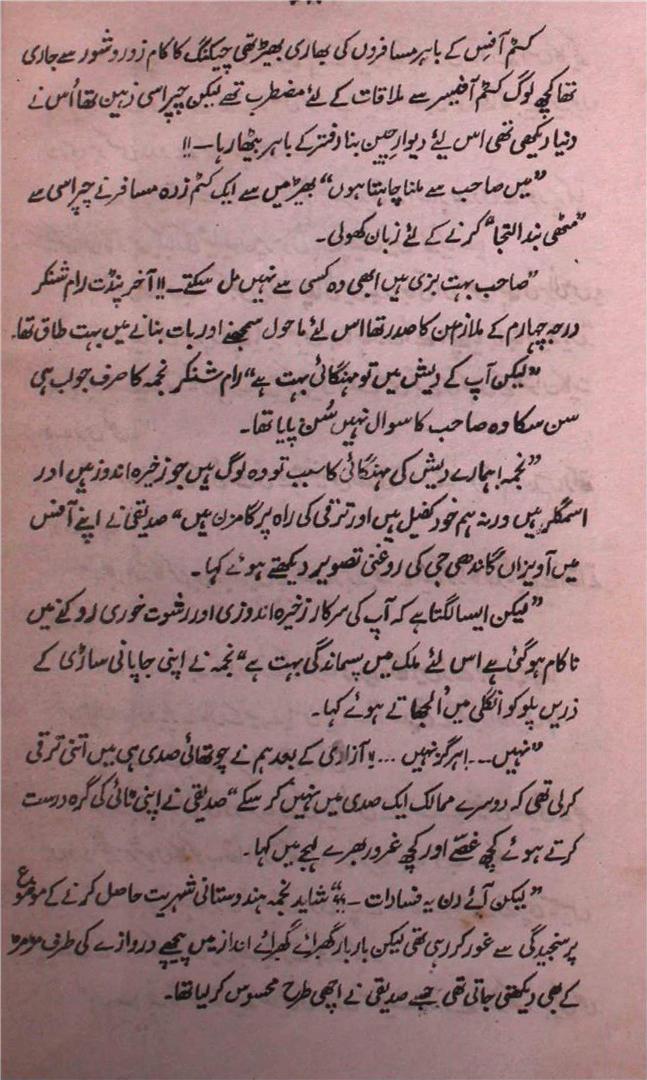 کسٹم آفس کے باہر مسافروں کی بھاری بھیڑ تھی چیکنگ کا کام زور و شور سے جاری
تھا کچھ لوگ کسٹم آفیسر سے ملاقات کے لئے مضطرب تھے لیکن چپراسی ذہین تھا اُس نے
دنیا دیکھی تھی اس لئے دیوار چین بنا دفتر کے باہر بیٹھا رہا۔۔!!
”میں صاحب سے ملنا چاہتا ہوں“ بھیڑ میں سے ایک کسٹم زدہ مسافر نے چپراسی سے
”مٹھی بند التجا“ کرنے کے لئے زبان کھولی۔
”صاحب بہت بزی ہیں ابھی وہ کسی سے نہیں مل سکتے۔!! آخر پنڈت رام شنکر
درجہ چہارم کے ملازمین کا صدر تھا اس لئے ماحول سمجھنے اور بات بنانے میں بہت طاق تھا۔
”لیکن آپ کے دیش میں تو مہنگائی بہت ہے“ رام شنکر نجمہ کا صرف جواب ہی
سن سکا وہ صاحب کا سوال نہیں سُن پایا تھا۔
”نجمہ! ہمارے دیش کی مہنگائی کا سبب تو وہ لوگ ہیں جو زخیرہ اندوز ہیں اور
اسمگلر ہیں ورنہ ہم خود کفیل ہیں اور ترقی کی راہ پر گامزن ہیں“ صدیقی نے اپنے آفس
میں آویزاں گاندھی جی کی روغنی تصویر دیکھتے ہوئے کہا۔
”لیکن ایسا لگتا ہے کہ آپ کی سرکار زخیرہ اندوزی اور رشوت خوری روکنے میں
ناکام ہو گئی ہے اس لئے ملک میں پسماندگی بہت ہے“ نجمہ نے اپنی جاپانی ساڑی کے
ذریں پلو کو انگلی میں اُلجھاتے ہوئے کہا۔
”نہیں۔۔۔ ہرگز نہیں ...!! آزادی کے بعد ہم نے چوتھائی صدی ہی میں اتنی ترقی
کر لی تھی کہ دوسرے ممالک ایک صدی میں نہیں کر سکے“ صدیقی نے اپنی ٹائی کی گرہ درست
کرتے ہوئے کچھ غصّے اور کچھ غرور بھرے لہجے میں کہا۔
”لیکن آئے دن یہ فسادات۔۔“ شاید نجمہ ہندوستانی شہریت حاصل کرنے کے موضوع
پر سنجیدگی سے غور کر رہی تھی لیکن بار بار گھبرائے گھبرائے انداز میں پیچھے دروازے کی طرف مڑ مڑ
کے بھی دیکھتی جاتی تھی جسے صدیقی نے اچھی طرح محسوس کر لیا تھا۔